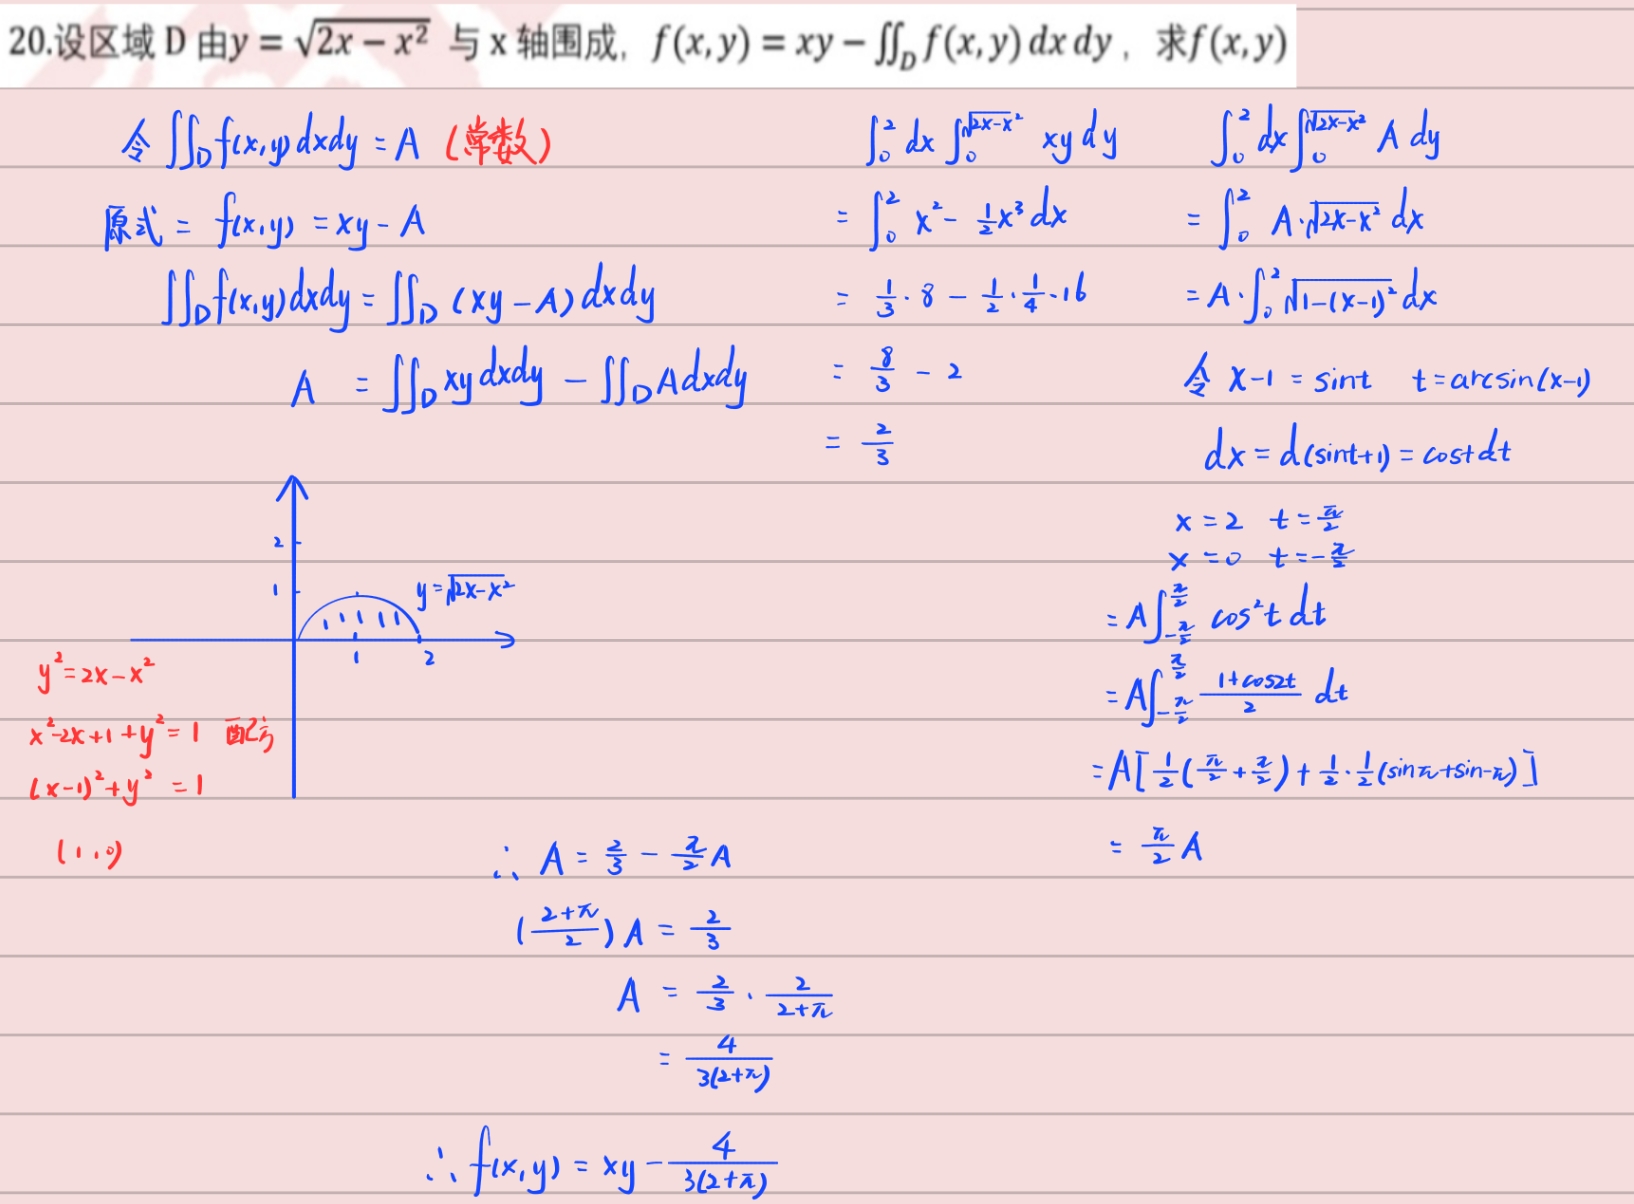 20.设区域 D 由y = √(2x − x²) 与 x 轴围成，f(x, y) = xy − ∬_D f(x, y) dx dy ，求f(x, y)
令 ∬_D f(x,y) dxdy = A (常数)
原式 = f(x,y) = xy - A
∬_D f(x,y) dxdy = ∬_D (xy - A) dxdy
A = ∬_D xy dxdy - ∬_D A dxdy
∫_0^2 dx ∫_0^√(2x-x²) xy dy
= ∫_0^2 x² - 1/2 x³ dx
= 1/3 · 8 - 1/2 · 1/4 · 16
= 8/3 - 2
= 2/3
∫_0^2 dx ∫_0^√(2x-x²) A dy
= ∫_0^2 A·√(2x-x²) dx
= A·∫_0^2 √(1-(x-1)²) dx
令 x-1 = sint t = arcsin(x-1)
dx = d(sint+1) = cost dt
x = 2 t = π/2
x = 0 t = -π/2
= A∫_{-π/2}^{π/2} cos²t dt
= A∫_{-π/2}^{π/2} (1+cos2t)/2 dt
= A[1/2(π/2 + π/2) + 1/2 · 1/2 (sinπ + sin-π)]
= π/2 A
2
1
y = √(2x-x²)
1 2
y² = 2x - x²
x²-2x+1+y² = 1 配方
(x-1)² + y² = 1
(1,0)
∴ A = 2/3 - π/2 A
((2+π)/2) A = 2/3
A = 2/3 · 2/(2+π)
= 4/(3(2+π))
∴ f(x,y) = xy - 4/(3(2+π))